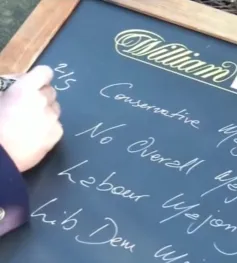 William
2/5
Conservative Maj
No Overall Maj
Labour Major
Lib Dem M